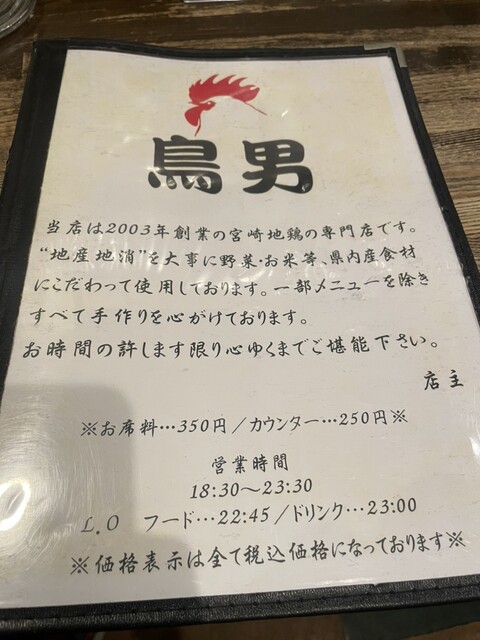 鳥男
当店は2003年創業の宮崎地鶏の専門店です。
“地産地消”を大事に野菜・お米等、県内産食材
にこだわって使用しております。一部メニューを除き
すべて手作りを心がけております。
お時間の許します限り心ゆくまでご堪能下さい。
店主
※お席料…350円/カウンター…250円※
営業時間
18:30～23:30
L.O フード…22:45/ドリンク…23:00
※価格表示は全て税込価格になっております※